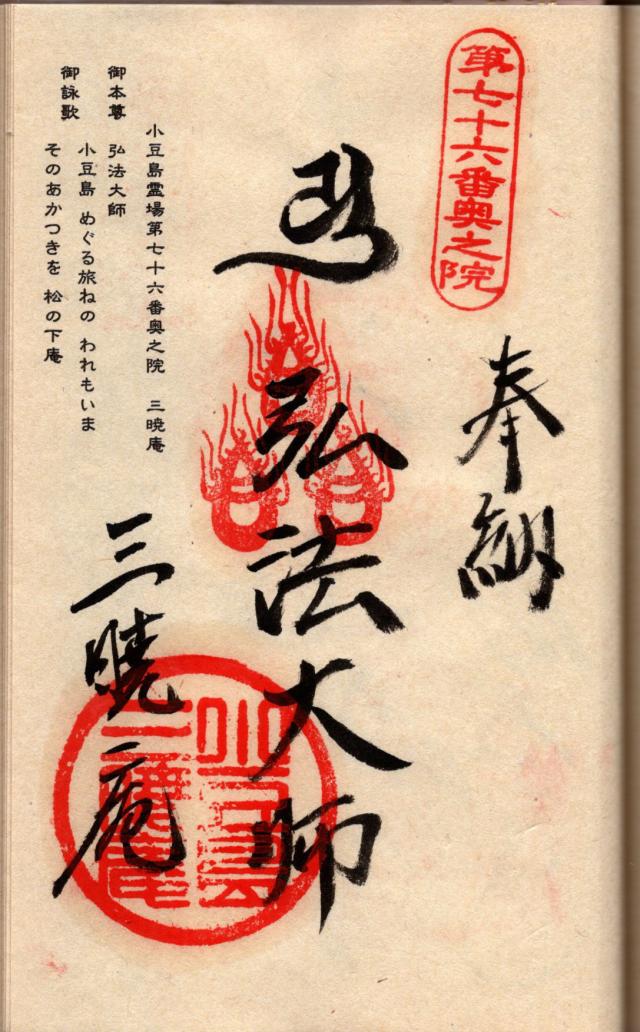 第七十六番奥之院
奉納
弘法大師
三暁庵
小豆島霊場第七十六番奥之院 三暁庵
御本尊 弘法大師
御詠歌 小豆島 めぐる旅ねの われもいま
そのあかつきを 松の下庵